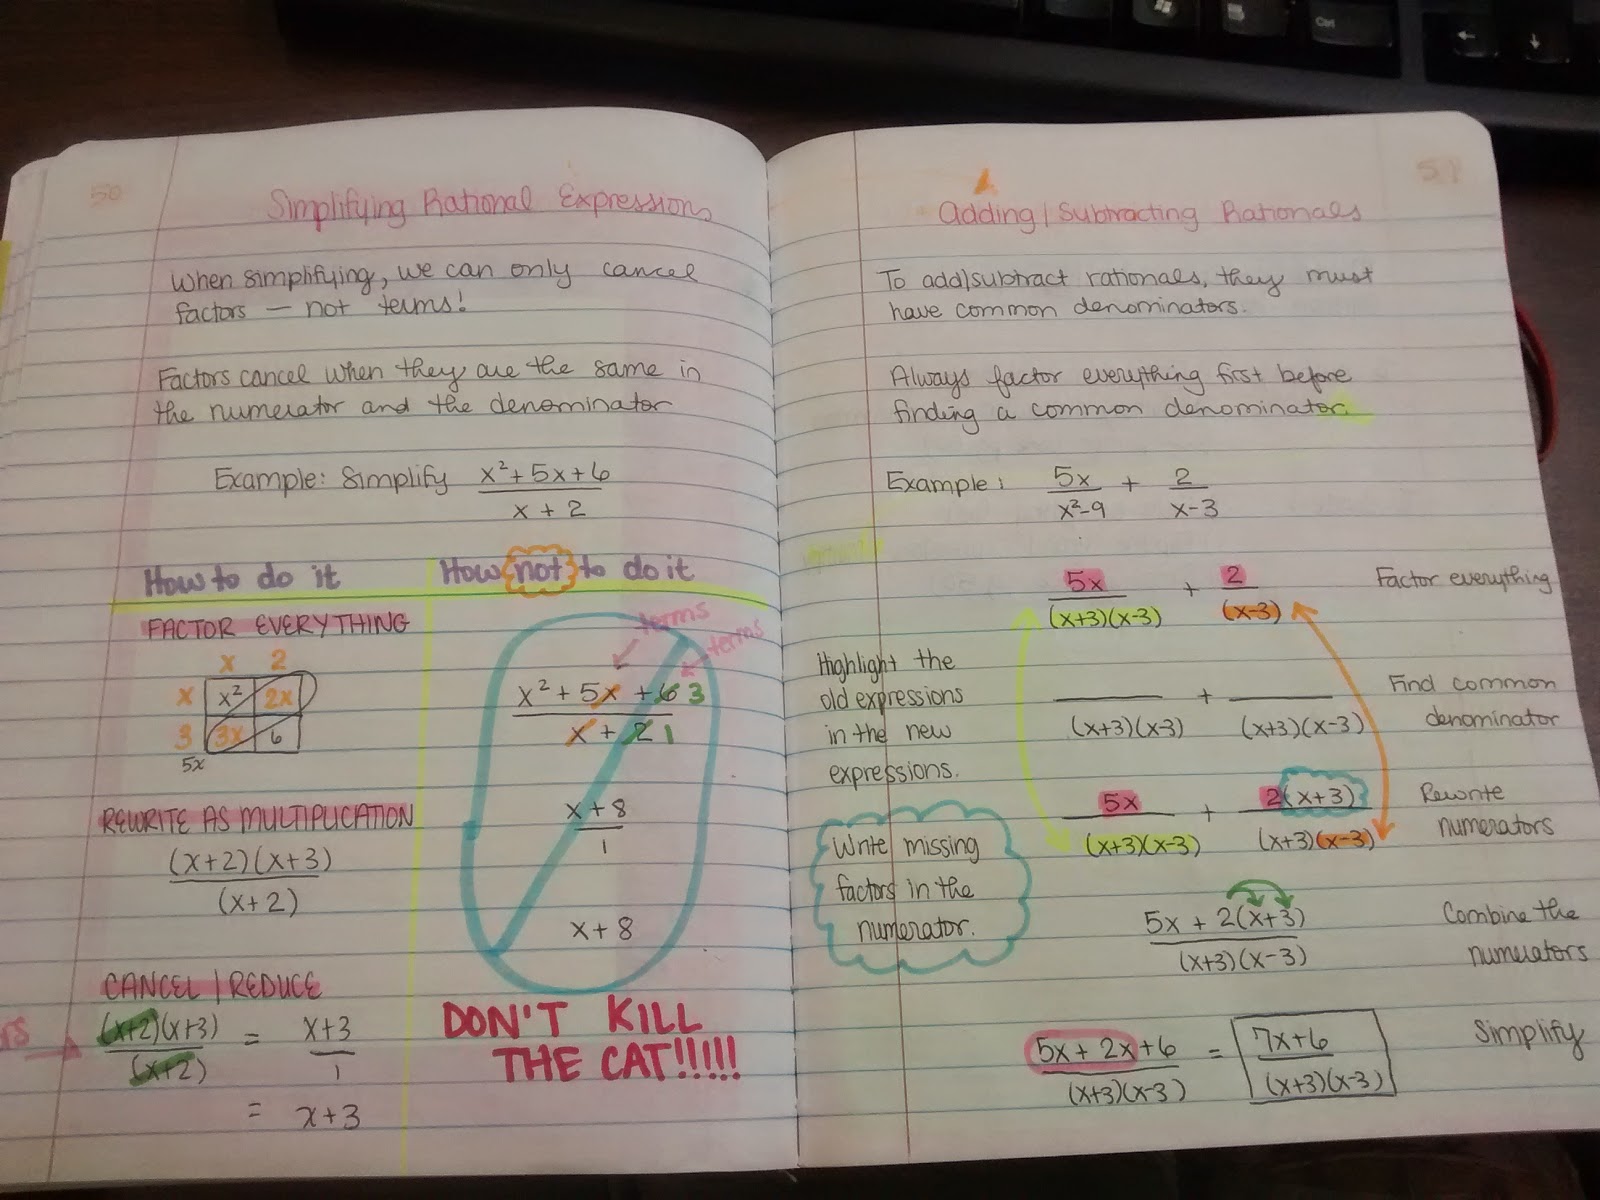 50
Simplifying Rational Expressions
When simplifying, we can only cancel
factors — not terms!
Factors cancel when they are the same in
the numerator and the denominator
Example: Simplify (x²+5x+6)/(x+2)
How to do it
FACTOR EVERYTHING
x 2
x x² 2x
3 3x 6
5x
REWRITE AS MULTIPLICATION
(x+2)(x+3)
(x+2)
CANCEL/REDUCE
(x+2)(x+3)/(x+2) = (x+3)/1
= x+3
How not to do it
terms
terms
x² + 5x + 6 3
x + 2 1
x+8
1
x+8
DON'T KILL
THE CAT!!!!!
51
Adding/Subtracting Rationals
To add/subtract rationals, they must
have common denominators.
Always factor everything first before
finding a common denominator.
Example: 5x/(x²-9) + 2/(x-3)
5x/((x+3)(x-3)) + 2/(x-3) Factor everything
Highlight the
old expressions
in the new
expressions.
___/((x+3)(x-3)) + ___/((x+3)(x-3)) Find common
denominator
5x/((x+3)(x-3)) + 2(x+3)/((x+3)(x-3)) Rewrite
numerators
Write missing
factors in the
numerator.
5x + 2(x+3)
(x+3)(x-3)
Combine the
numerators
(5x + 2x + 6)/((x+3)(x-3)) = (7x+6)/((x+3)(x-3)) Simplify
Ctrl